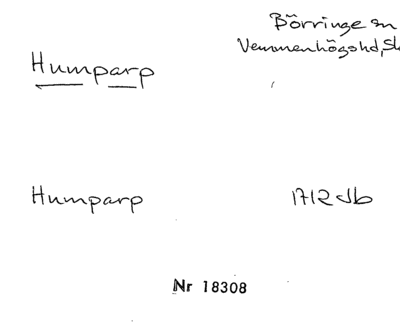 Börringe sn
Humparp
Vemmenhögshd, Sk
Humparp
1712 Jb
Nr 18308